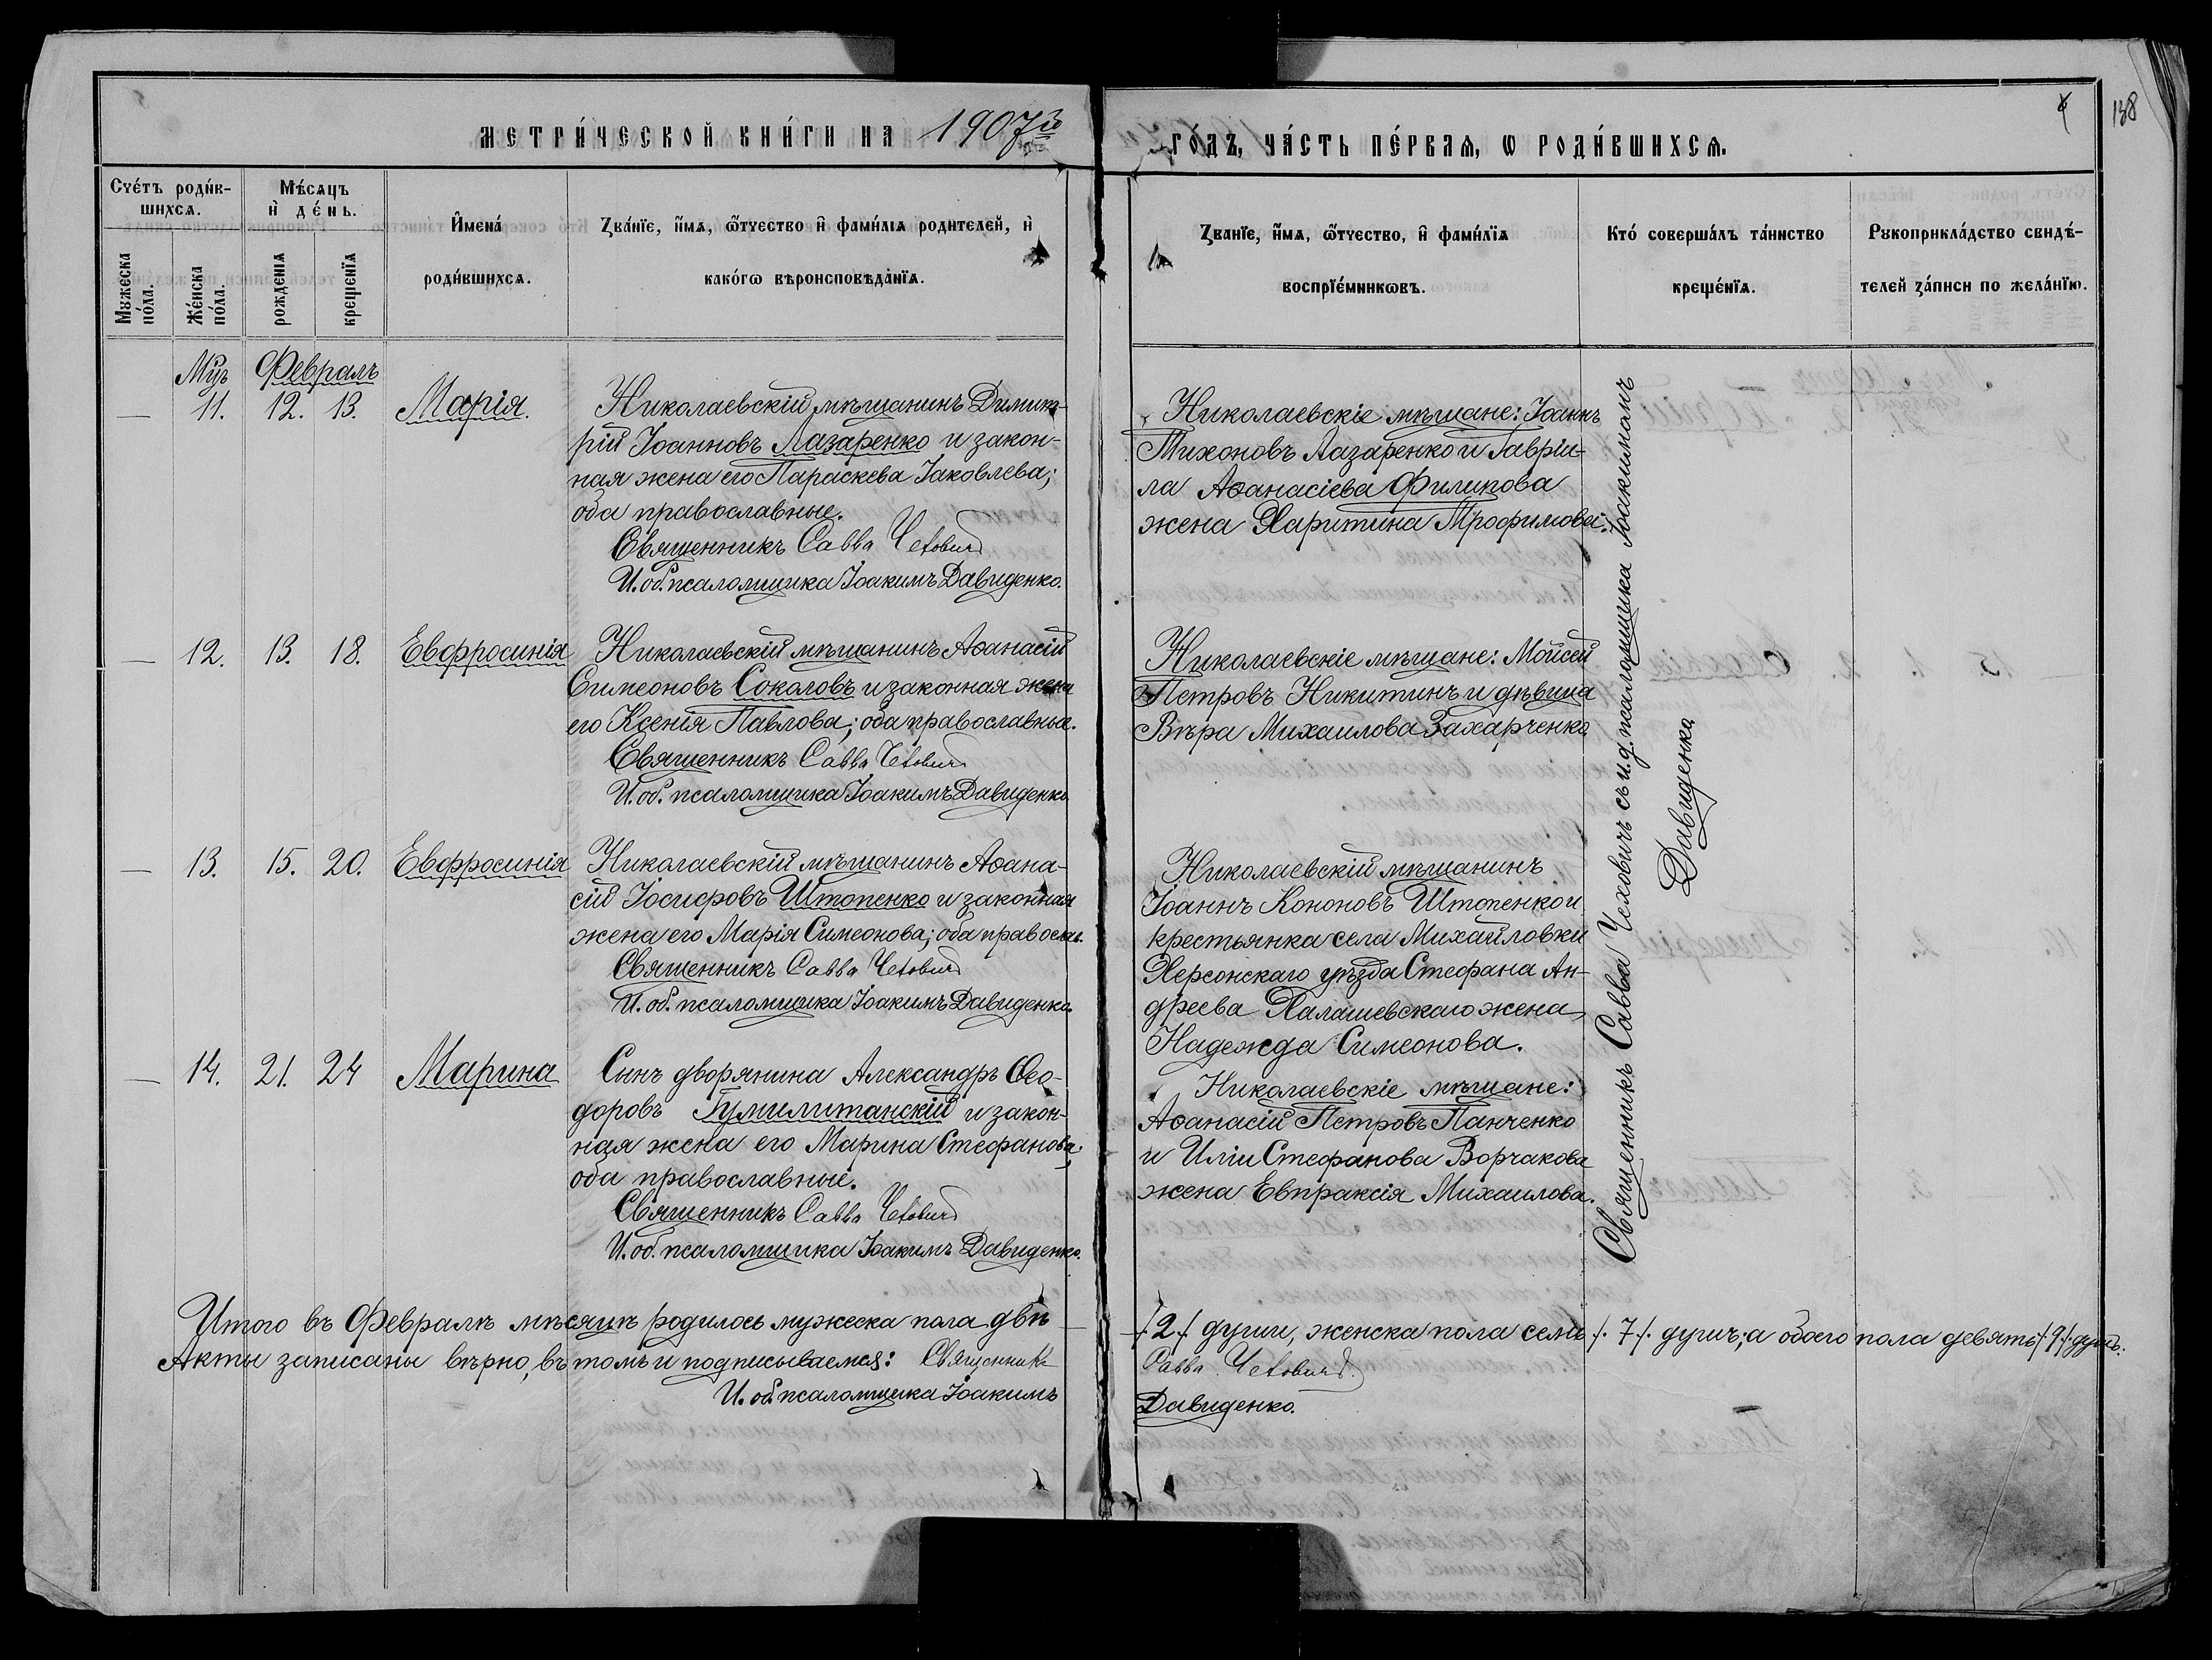 МЕТРИ́ЧЕСКОЙ КНИ́ГИ НА 1907й ГО́ДЪ, ЧА́СТЬ ПЕ́РВАѦ, Ѡ РОДИ́ВШИХСѦ.
138
Сче́тъ роди́в-
шихсѧ.
Мѣ́сѧцъ
и҆ де́нь.
И҆мена́
роди́вшихсѧ.
Зва́нїе, и҆́мѧ, ѻ҆́тчество и҆ фами́лїѧ родителей, и҆
како́гѡ вѣроисповѣда́нїѧ.
Зва́нїе, и҆́мѧ, ѻ҆́тчество, и҆ фами́лїѧ
воспрїе́мникѡвъ.
Кто́ соверша́лъ та́инство
креще́нїѧ.
Рꙋкоприкла́дство свидѣ́-
телей за́писи по жела́нїю.
Мꙋжеска
по́ла.
Же́нска
по́ла.
рожденїѧ
крещенїѧ
Мцъ Февраль
— 11. 12. 13. Марія.
Николаевскій мѣщанинъ Димит-
рій Іоанновъ Лазаренко и закон-
ная жена его Параскева Іаковлева;
оба православные.
Священникъ Савва Чеховичъ
И. об. псаломщика Іоакимъ Давиденко.
Николаевскіе мѣщане: Іоаннъ
Тихоновъ Лазаренко и Гавріи-
ла Аѳанасіева Филипова
жена Харитина Трофимова.
— 12. 13. 18. Евфросинія
Николаевскій мѣщанинъ Аѳанасій
Симеоновъ Соколовъ и законная жена
его Ксенія Павлова; оба православные.
Священникъ Савва Чеховичъ
И. об. псаломщика Іоакимъ Давиденко
Николаевскіе мѣщане: Мойсей
Петровъ Никитинъ и дѣвица
Вѣра Михаилова Захарченко
— 13. 15. 20. Евфросинія
Николаевскій мѣщанинъ Аѳана-
сій Іосифовъ Штопенко и законная
жена его Марія Симеонова; оба правосл.
Священникъ Савва Чеховичъ
И. об. псаломщика Іоакимъ Давиденко.
Николаевскій мѣщанинъ
Іоаннъ Кононовъ Штопенко и
крестьянка села Михайловки
Херсонскаго уѣзда Стефана Ан-
дреева Халашевскаго жена
Надежда Симеонова.
— 14. 21. 24 Марина
Сынъ дворянина Александръ Ѳео-
доровъ Гумилитанскій и закон-
ная жена его Марина Стефанова;
оба православные.
Священникъ Савва Чеховичъ
И. об. псаломщика Іоакимъ Давиденко.
Николаевскіе мѣщане:
Аѳанасій Петровъ Панченко
и Иліи Стефанова Ворчакова
жена Евпраксія Михаилова.
Священникъ Савва Чеховичъ съ и. д. псаломщика Іоакимомъ
Давиденка
Итого въ Февралѣ мѣсяцѣ родилось мужеска пола двѣ — /2/ души, женска пола семь /7/ душъ; а обоего пола девять /9/ душъ.
Акты записаны вѣрно, въ томъ и подписываемся: Священникъ Савва Чеховичъ.
И. об. псаломщика Іоакимъ Давиденко.